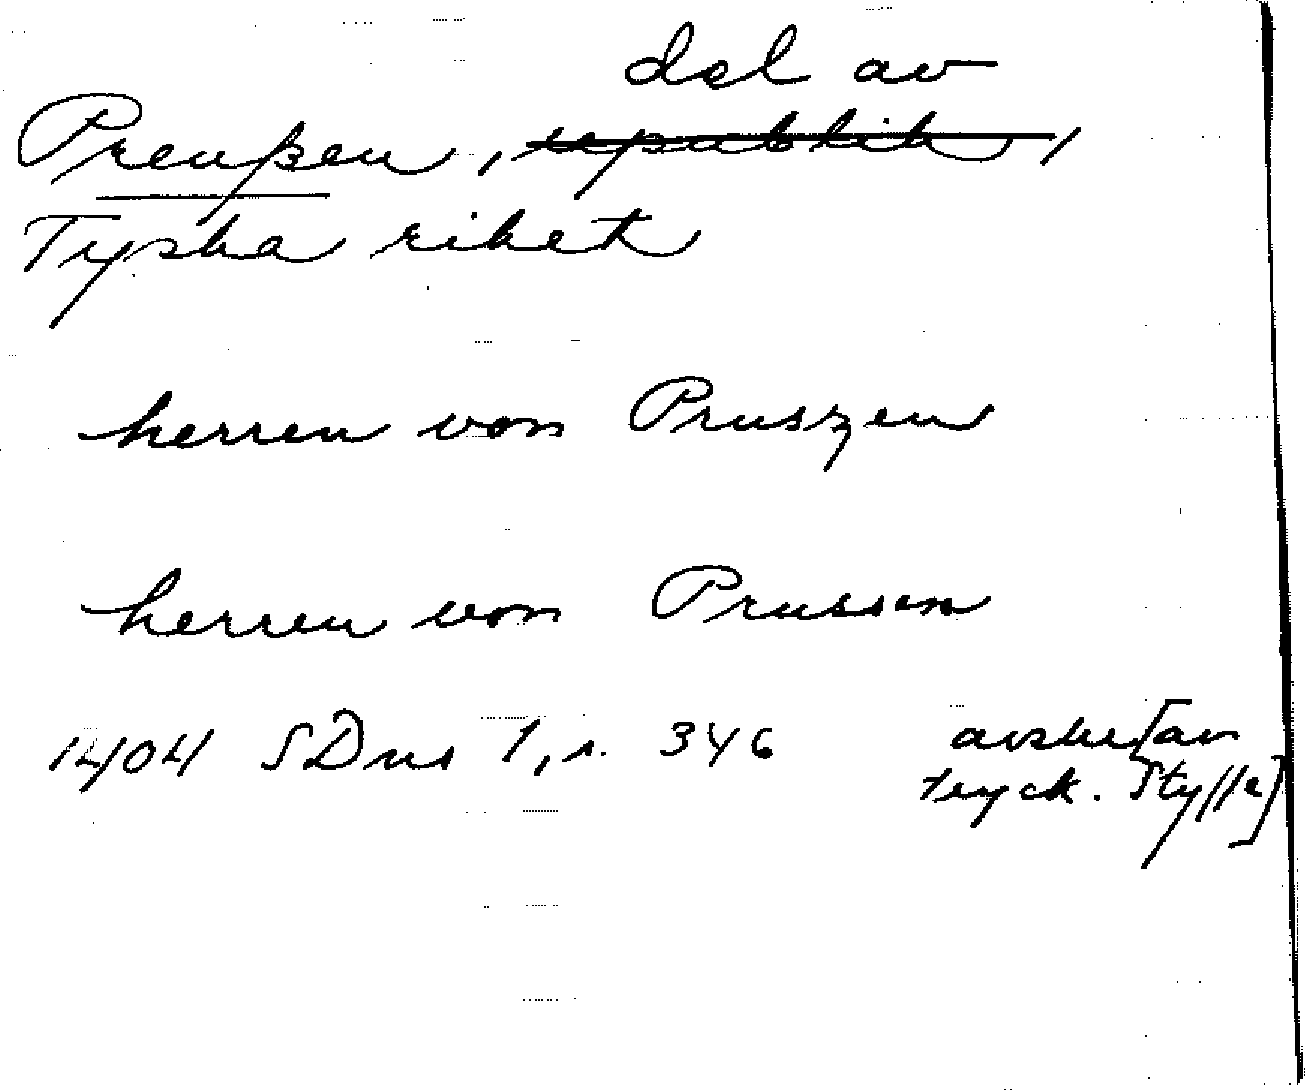 del av
Preußen, republik,
Tyska riket
herren von Pruszen
herren von Prussen
1404 SDns 1, s. 346 avskr [av
tryck. Styffe]